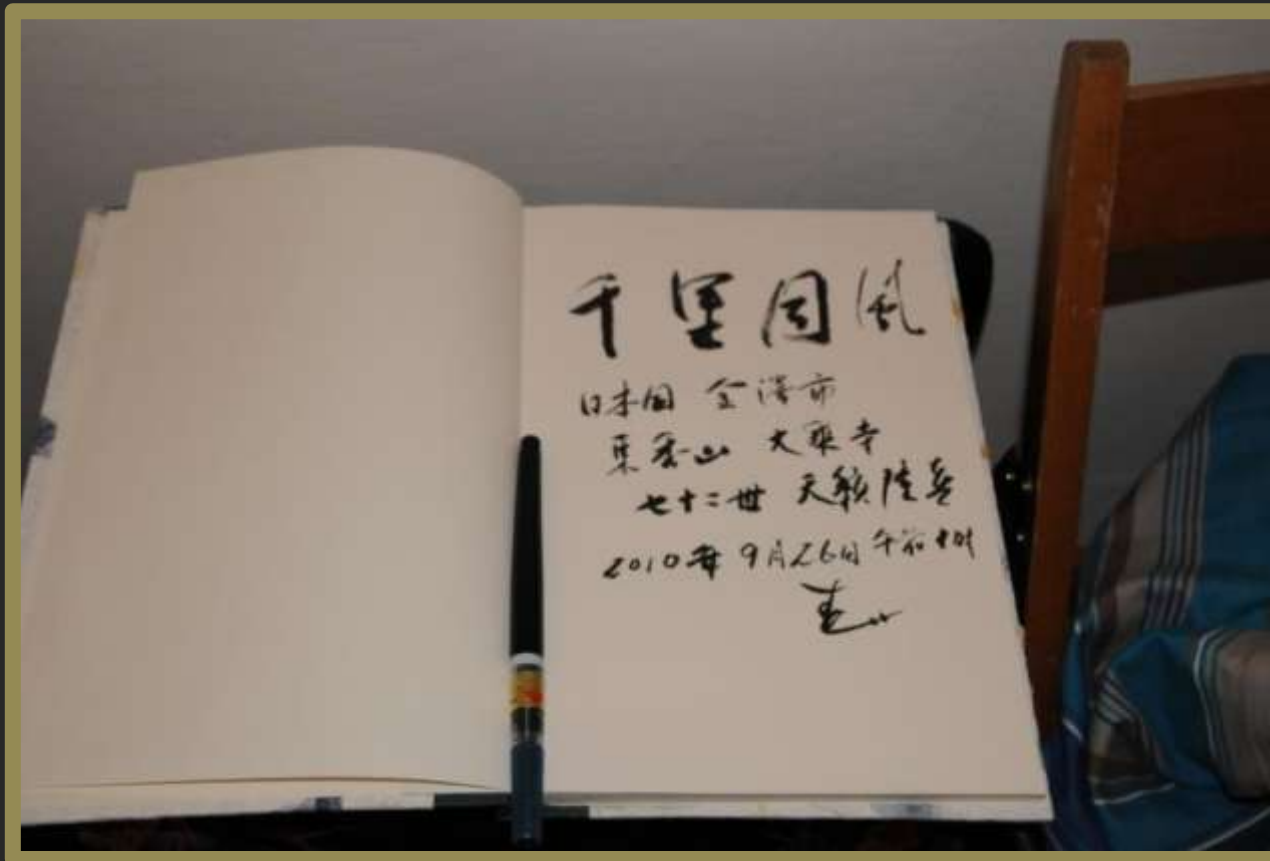 千里同風
日本国 金澤市
東香山 大乗寺
七十二世 天籟隆
2010年 9月26日 午前